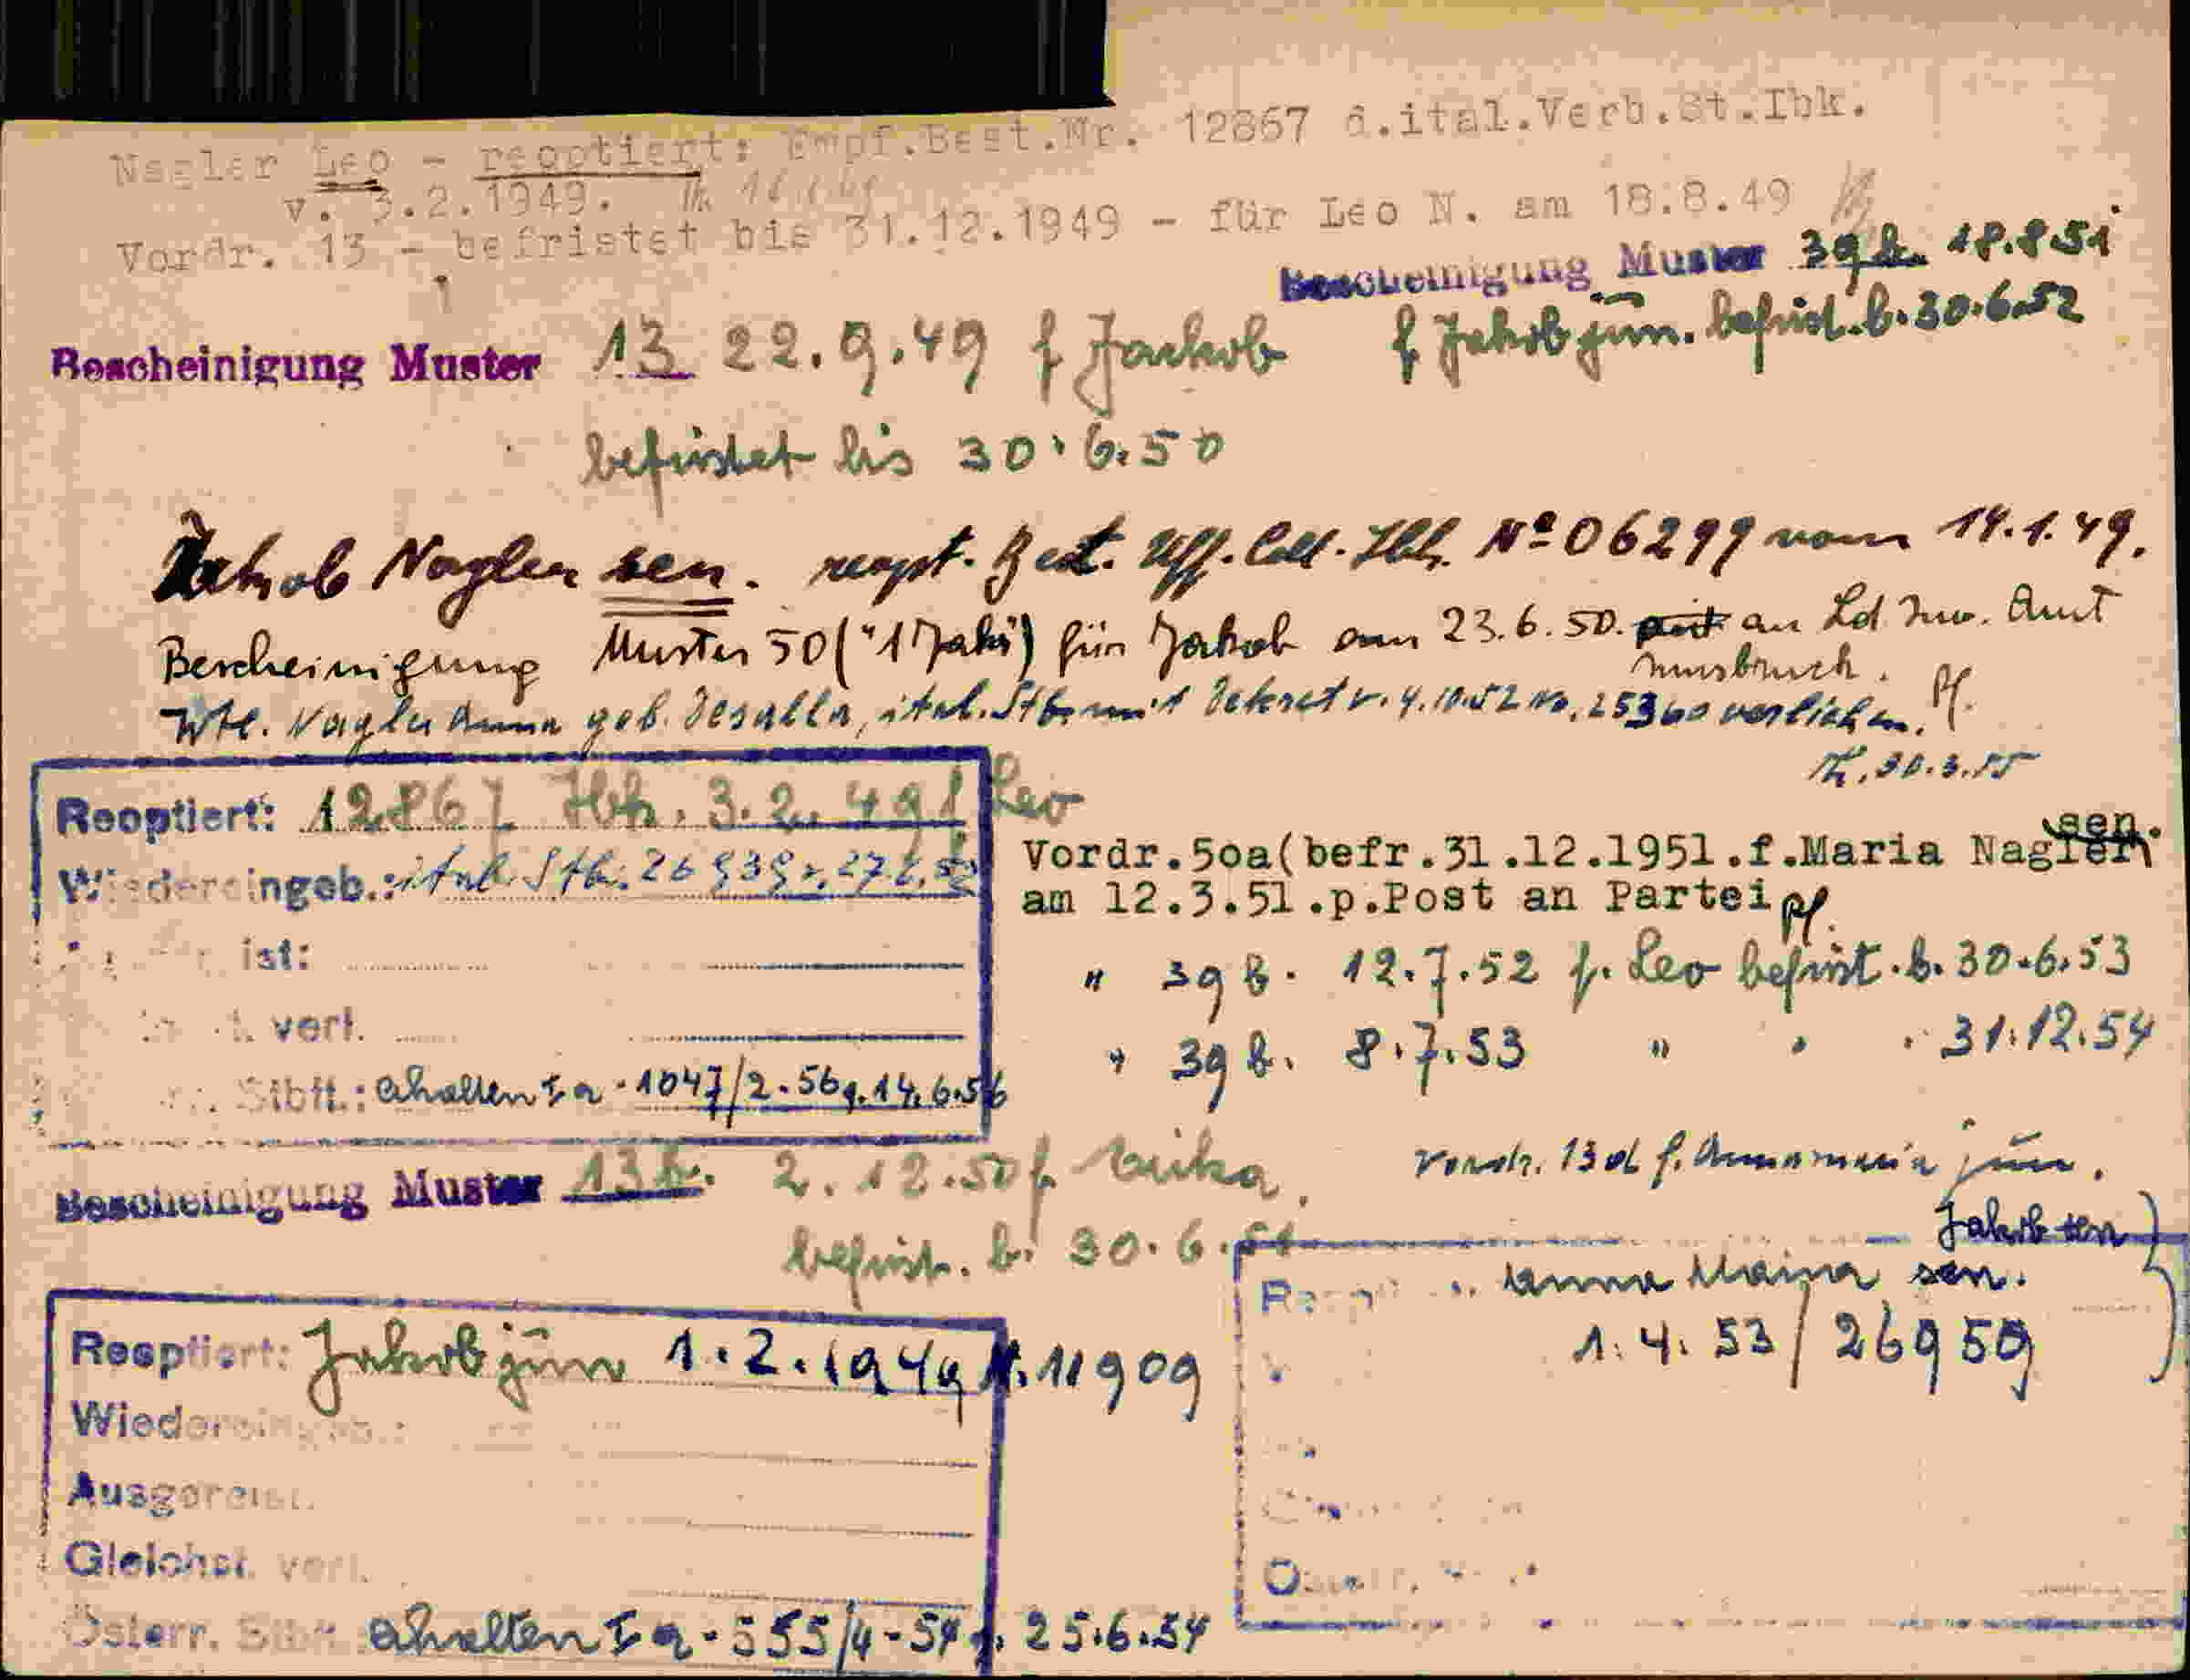 Nagler Leo - reoptiert: Empf.Best.Nr. 12867 d.ital.Verb.St.Ibk.
v. 3.2.1949.
Vordr. 13 - befristet bis 31.12.1949 - für Leo N. am 18.8.49
Bescheinigung Muster 39 b. 18.8.51
f Jakob jun. befrist. b. 30.6.52
Bescheinigung Muster 13 22.9.49 f Jakob
befristet bis 30.6.50
Jakob Nagler sen. reopt. Best. Uff. Coll. Ibk. Nº 06299 vom 14.1.49.
Bescheinigung Muster 50 ("1 Jahr") für Jakob am 23.6.50. an Ld. Inv. Amt
Innsbruck.
Wtl. Nagler Anna geb. ital. Stb. mit Dekret v. 4.10.52 No. 25360 verliehen. Pf.
30.3.55
Reoptiert: 12867 Ibk. 3.2.49 f Leo
Wiedereingeb.: ital. Stb. 26939 v. 27.2.
ist:
verl.
Stbft.: erhalten I a - 1047/2-56 v. 14.6.56
Vordr.50a(befr.31.12.1951.f.Maria Nagler sen.
am 12.3.51.p.Post an Partei Pf.
" 39 b. 12.7.52 f. Leo befrist. b. 30.6.53
" 39 b. 8.7.53 " " " 31.12.54
Bescheinigung Muster 13 b. 2.12.50 f. Erika
befrist. b. 30.6.51
Vordr. 13 d f. Annamaria jun.
Jakob sen
Anna Maria sen.
1.4.53/26959
Reoptiert: Jakob jun 1.2.1949 N. 11909
Wiedereingeb.:
Ausgereist:
Gleichst. verl.
Österr. Stbft. erhalten I a - 555/4-54 v. 25.6.54